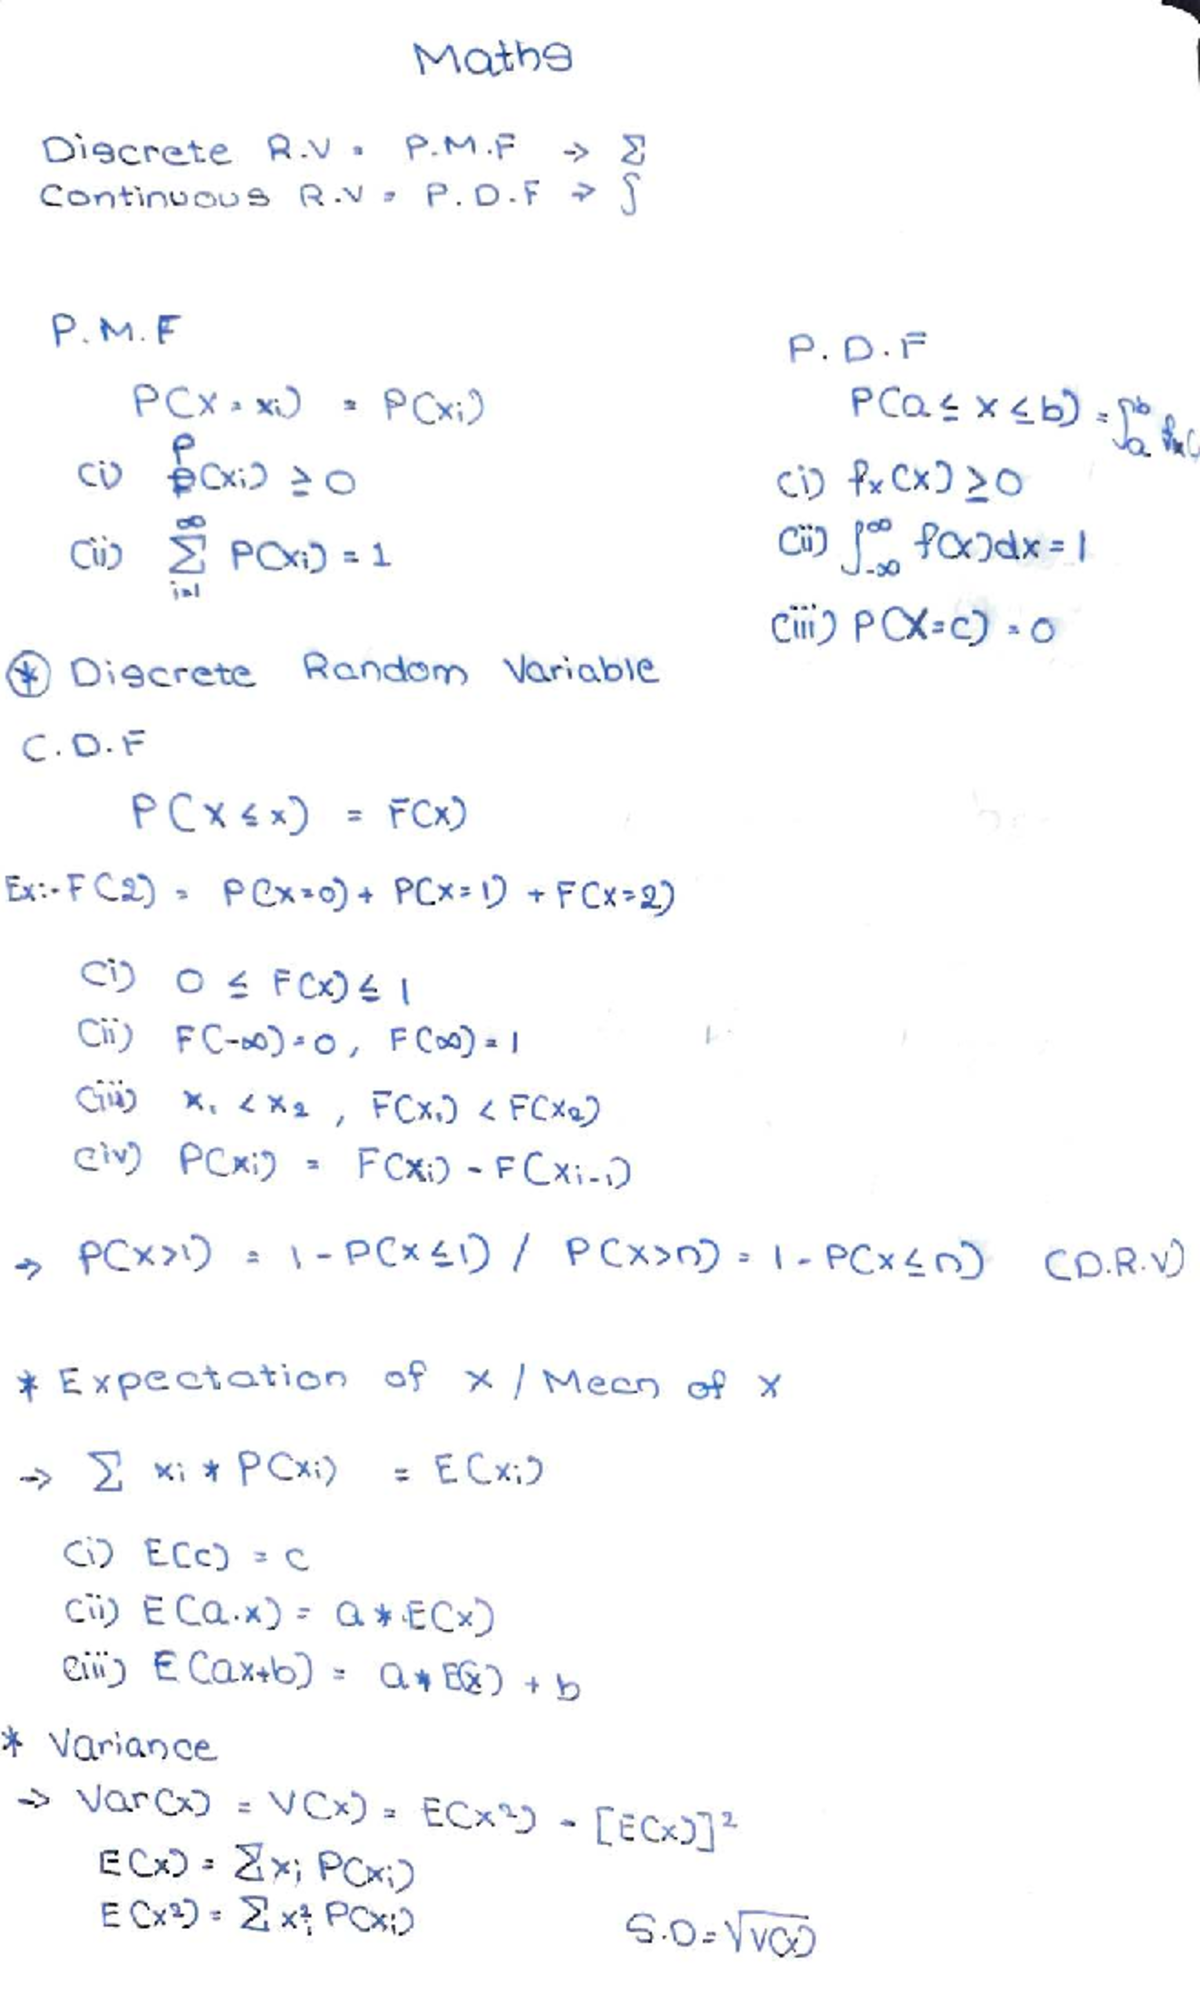 Maths
Discrete R.V = P.M.F → Σ
Continuous R.V = P.D.F → ∫
P.M.F
P(X = xi) = P(xi)
(i) P(xi) ≥ 0
(ii) ∞Σi=1 P(xi) = 1
P.D.F
P(a ≤ x ≤ b) = ∫ab fx(
(i) fx(x) ≥ 0
(ii) ∫-∞∞ f(x)dx = 1
(iii) P(X=c) = 0
* Discrete Random Variable
C.D.F
P(X ≤ x) = F(x)
Ex:- F(2) = P(x=0) + P(x=1) + F(x=2)
(i) 0 ≤ F(x) ≤ 1
(ii) F(-∞) = 0, F(∞) = 1
(iii) x1 < x2, F(x1) < F(x2)
(iv) P(xi) = F(xi) - F(xi-1)
→ P(x>1) = 1 - P(x≤1) / P(x>n) = 1 - P(x≤n) (D.R.V)
* Expectation of x / Mean of x
→ Σ xi * P(xi) = E(xi)
(i) E(c) = c
(ii) E(a.x) = a * E(x)
(iii) E(ax+b) = a * E(x) + b
* Variance
→ Var(x) = V(x) = E(x²) - [E(x)]²
E(x) = Σxi P(xi)
E(x²) = Σxi² P(xi)
S.D = √V(x)